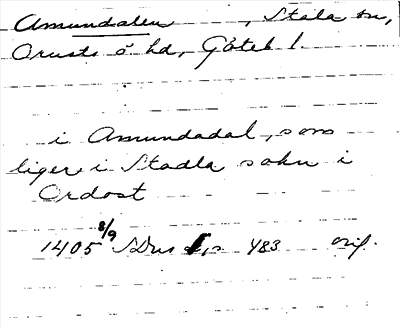 Amundalen , Stala sn,
Orusts ö hd, Göteb l.
i Amundadal, som
liger i Stadla sokn i
Ordost
1405 8/9 483 orig.